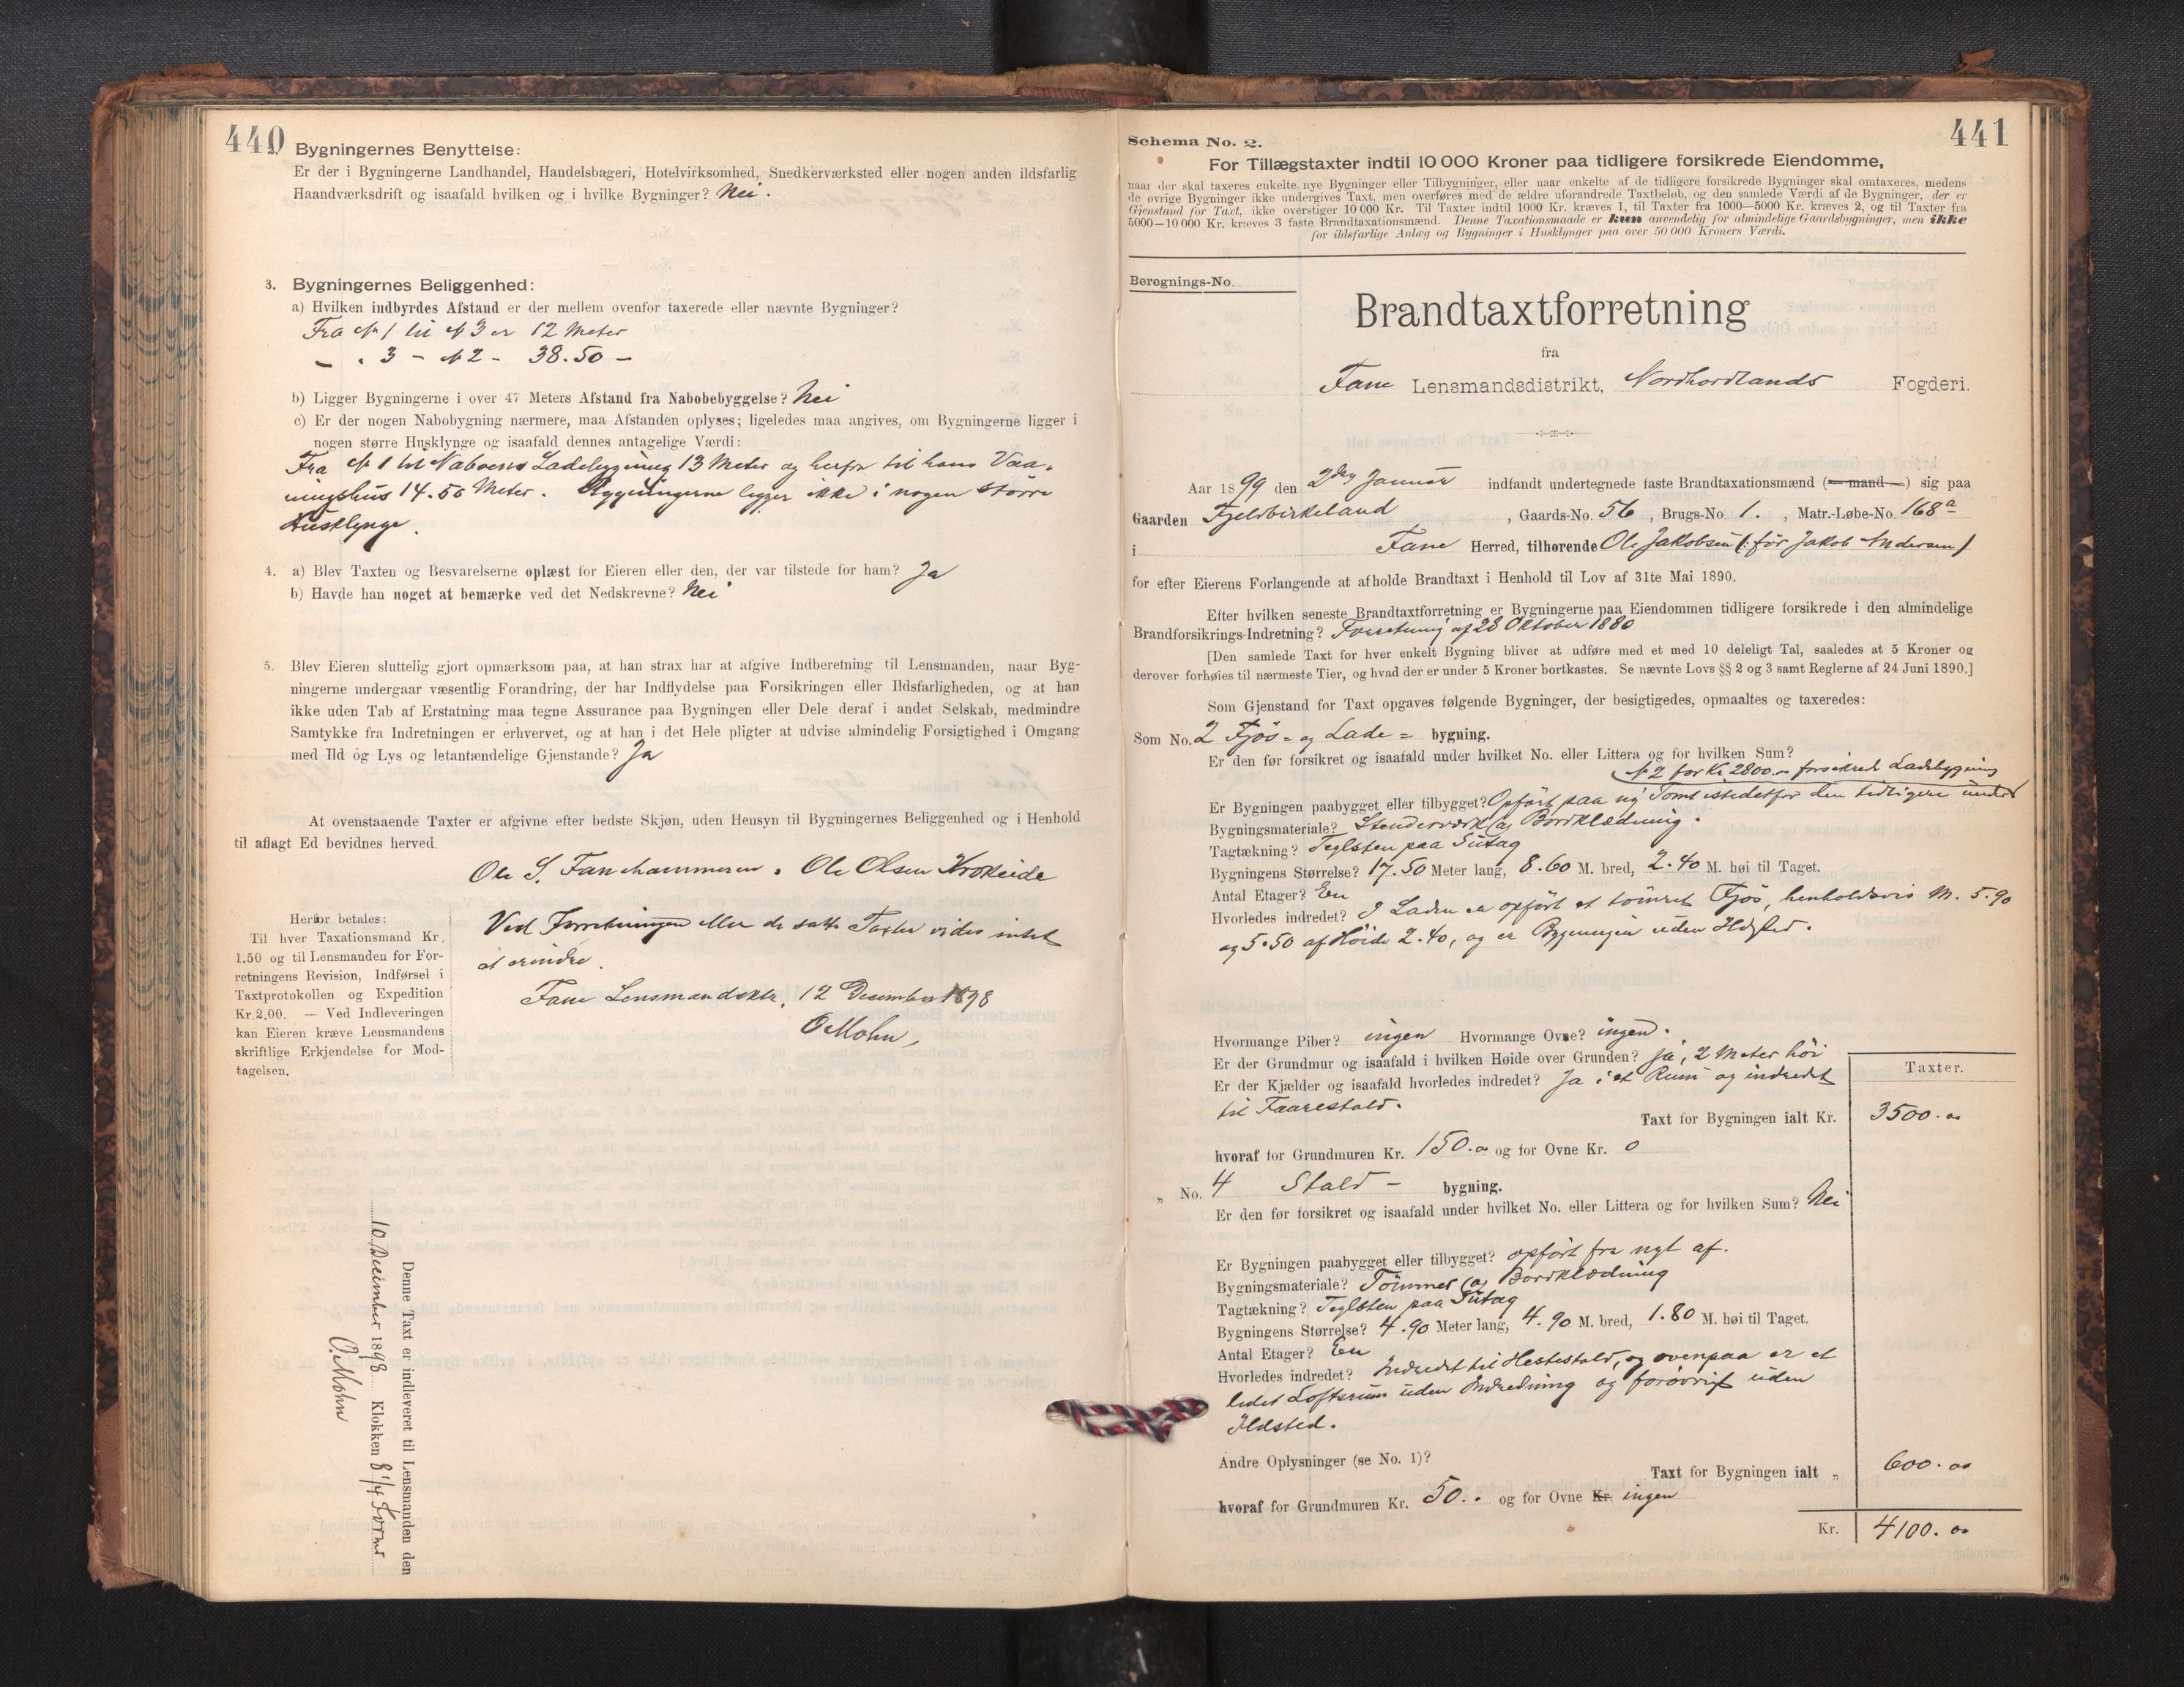 440
2. Bygningernes Benyttelse:
Er der i Bygningerne Landhandel, Handelsbageri, Hotelvirksomhed, Snedkerværksted eller nogen anden ildsfarlig
Haandværksdrift og isaafald hvilken og i hvilke Bygninger? Nei.
3. Bygningernes Beliggenhed:
a) Hvilken indbyrdes Afstand er der mellem ovenfor taxerede eller nævnte Bygninger?
Fra № 1 til № 3 er 12 Meter
— " 3 — № 2 — 38.50 —
b) Ligger Bygningerne i over 47 Meters Afstand fra Nabobebyggelse? Nei
c) Er der nogen Nabobygning nærmere, maa Afstanden oplyses; ligeledes maa angives, om Bygningerne ligger i
nogen større Husklynge og isaafald dennes antagelige Værdi:
Fra № 1 til Naboens Ladebygning 13 Meter og herfra til hans Vaa-
ningshus 14.50 Meter. Bygningerne ligger ikke i nogen større
Husklynge.
4. a) Blev Taxten og Besvarelserne oplæst for Eieren eller den, der var tilstede for ham? Ja
b) Havde han noget at bemærke ved det Nedskrevne? Nei
5. Blev Eieren sluttelig gjort opmærksom paa, at han strax har at afgive Indberetning til Lensmanden, naar Byg-
ningerne undergaar væsentlig Forandring, der har Indflydelse paa Forsikringen eller Ildsfarligheden, og at han
ikke uden Tab af Erstatning maa tegne Assurance paa Bygningen eller Dele deraf i andet Selskab, medmindre
Samtykke fra Indretningen er erhvervet, og at han i det Hele pligter at udvise almindelig Forsigtighed i Omgang
med Ild og Lys og letantændelige Gjenstande? Ja
At ovenstaaende Taxter er afgivne efter bedste Skjøn, uden Hensyn til Bygningernes Beliggenhed og i Henhold
til aflagt Ed bevidnes herved.
Ole S. Fanehammeren. Ole Olsen Krokeide
Herfor betales:
Til hver Taxationsmand Kr.
1.50 og til Lensmanden for For-
retningens Revision, Indførsel i
Taxtprotokollen og Expedition
Kr. 2.00. — Ved Indleveringen
kan Eieren kræve Lensmandens
skriftlige Erkjendelse for Mod-
tagelsen.
Ved Forretningen eller de satte Taxter vides intet
at erindre.
Fane Lensmandsktr. 12 December 1898
O Mohn,
Denne Taxt er indleveret til Lensmanden den
10 December 1898 Klokken 8 1/4 Form
O. Mohn
441
Schema No. 2.
For Tillægstaxter indtil 10 000 Kroner paa tidligere forsikrede Eiendomme,
naar der skal taxeres enkelte nye Bygninger eller Tilbygninger, eller naar enkelte af de tidligere forsikrede Bygninger skal omtaxeres, medens
de øvrige Bygninger ikke undergives Taxt, men overføres med de ældre uforandrede Taxtbeløb, og den samlede Værdi af de Bygninger, der er
Gjenstand for Taxt, ikke overstiger 10 000 Kr. Til Taxter indtil 1000 Kr. kræves 1, til Taxter fra 1000—5000 Kr. kræves 2, og til Taxter fra
5000—10 000 Kr. kræves 3 faste Brandtaxationsmænd. Denne Taxationsmaade er kun anvendelig for almindelige Gaardsbygninger, men ikke
for ildsfarlige Anlæg og Bygninger i Husklynger paa over 50 000 Kroners Værdi.
Beregnings-No.
Brandtaxtforretning
fra
Fane Lensmandsdistrikt, Nordhordlands Fogderi.
Aar 1899 den 2den Januar indfandt undertegnede faste Brandtaxationsmænd (mand) sig paa
Gaarden Fjeldbirkeland, Gaards-No. 56, Brugs-No. 1., Matr.-Løbe-No. 168a
i Fane Herred, tilhørende Ole Jakobsen (: før Jakob Andersen)
for efter Eierens Forlangende at afholde Brandtaxt i Henhold til Lov af 31te Mai 1890.
Efter hvilken seneste Brandtaxtforretning er Bygningerne paa Eiendommen tidligere forsikrede i den almindelige
Brandforsikrings-Indretning? Forretning af 28 Oktober 1880
[Den samlede Taxt for hver enkelt Bygning bliver at udføre med et med 10 deleligt Tal, saaledes at 5 Kroner og
derover forhøies til nærmeste Tier, og hvad der er under 5 Kroner bortkastes. Se nævnte Lovs §§ 2 og 3 samt Reglerne af 24 Juni 1890.]
Som Gjenstand for Taxt opgaves følgende Bygninger, der besigtigedes, opmaaltes og taxeredes:
Som No. 2 Fjøs- og Lade- bygning.
Er den før forsikret og isaafald under hvilket No. eller Littera og for hvilken Sum?
№ 2 for Kr 2800.00 forsikret Ladebygning
Er Bygningen paabygget eller tilbygget? Opført paa ny Tomt istedetfor den tidligere under
Bygningsmateriale? Stenderværk og Bordklædning.
Tagtækning? Teglsten paa Sutag
Bygningens Størrelse? 17.50 Meter lang, 8.60 M. bred, 2.40 M. høi til Taget.
Antal Etager? En
Hvorledes indredet? I Laden er opført et tømret Fjøs, henholdsvis M. 5.90
og 5.50 af Høide 2.40, og er Bygningen uden Ildsted.
Hvormange Piber? ingen Hvormange Ovne? ingen.
Er der Grundmur og isaafald i hvilken Høide over Grunden? Ja, 2 Meter høi
Er der Kjælder og isaafald hvorledes indredet? Ja i et Rum og indredet
til Faarestald.
Taxter.
Taxt for Bygningen ialt Kr. 3500.00
hvoraf for Grundmuren Kr. 150.00 og for Ovne Kr. 0
„ No. 4 Stald- bygning.
Er den før forsikret og isaafald under hvilket No. eller Littera og for hvilken Sum? Nei
Er Bygningen paabygget eller tilbygget? opført fra nyt af.
Bygningsmateriale? Tømmer og Bordklædning
Tagtækning? Teglsten paa Sutag
Bygningens Størrelse? 4.90 Meter lang, 4.90 M. bred, 1.80 M. høi til Taget.
Antal Etager? En
Hvorledes indredet? Indredet til Hestestald, og ovenpaa er et
lidet Loftsrum uden Indredning og forøvrigt uden
Ildsted.
Andre Oplysninger (se No. 1)?
Taxt for Bygningen ialt „ 600.00
hvoraf for Grundmuren Kr. 50.. og for Ovne Kr. ingen
Kr. 4100.00